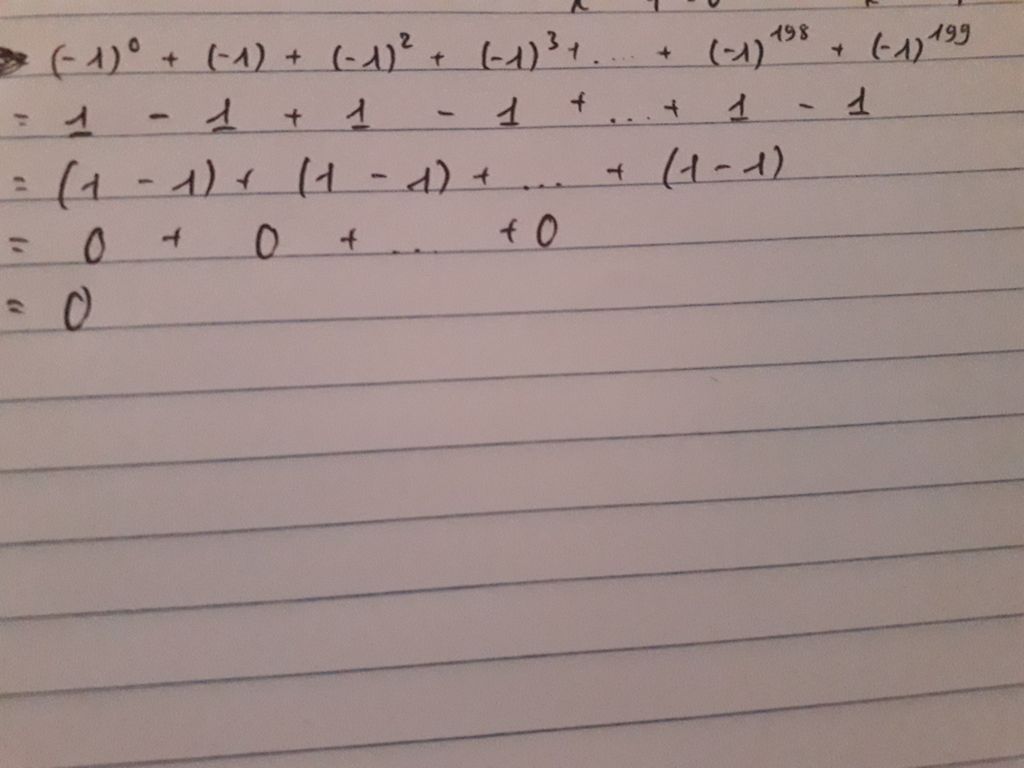 (-1)⁰ + (-1) + (-1)² + (-1)³ + .... + (-1)¹⁹⁸ + (-1)¹⁹⁹
= 1 - 1 + 1 - 1 + ... + 1 - 1
= (1 - 1) + (1 - 1) + ... + (1 - 1)
= 0 + 0 + ... + 0
= 0